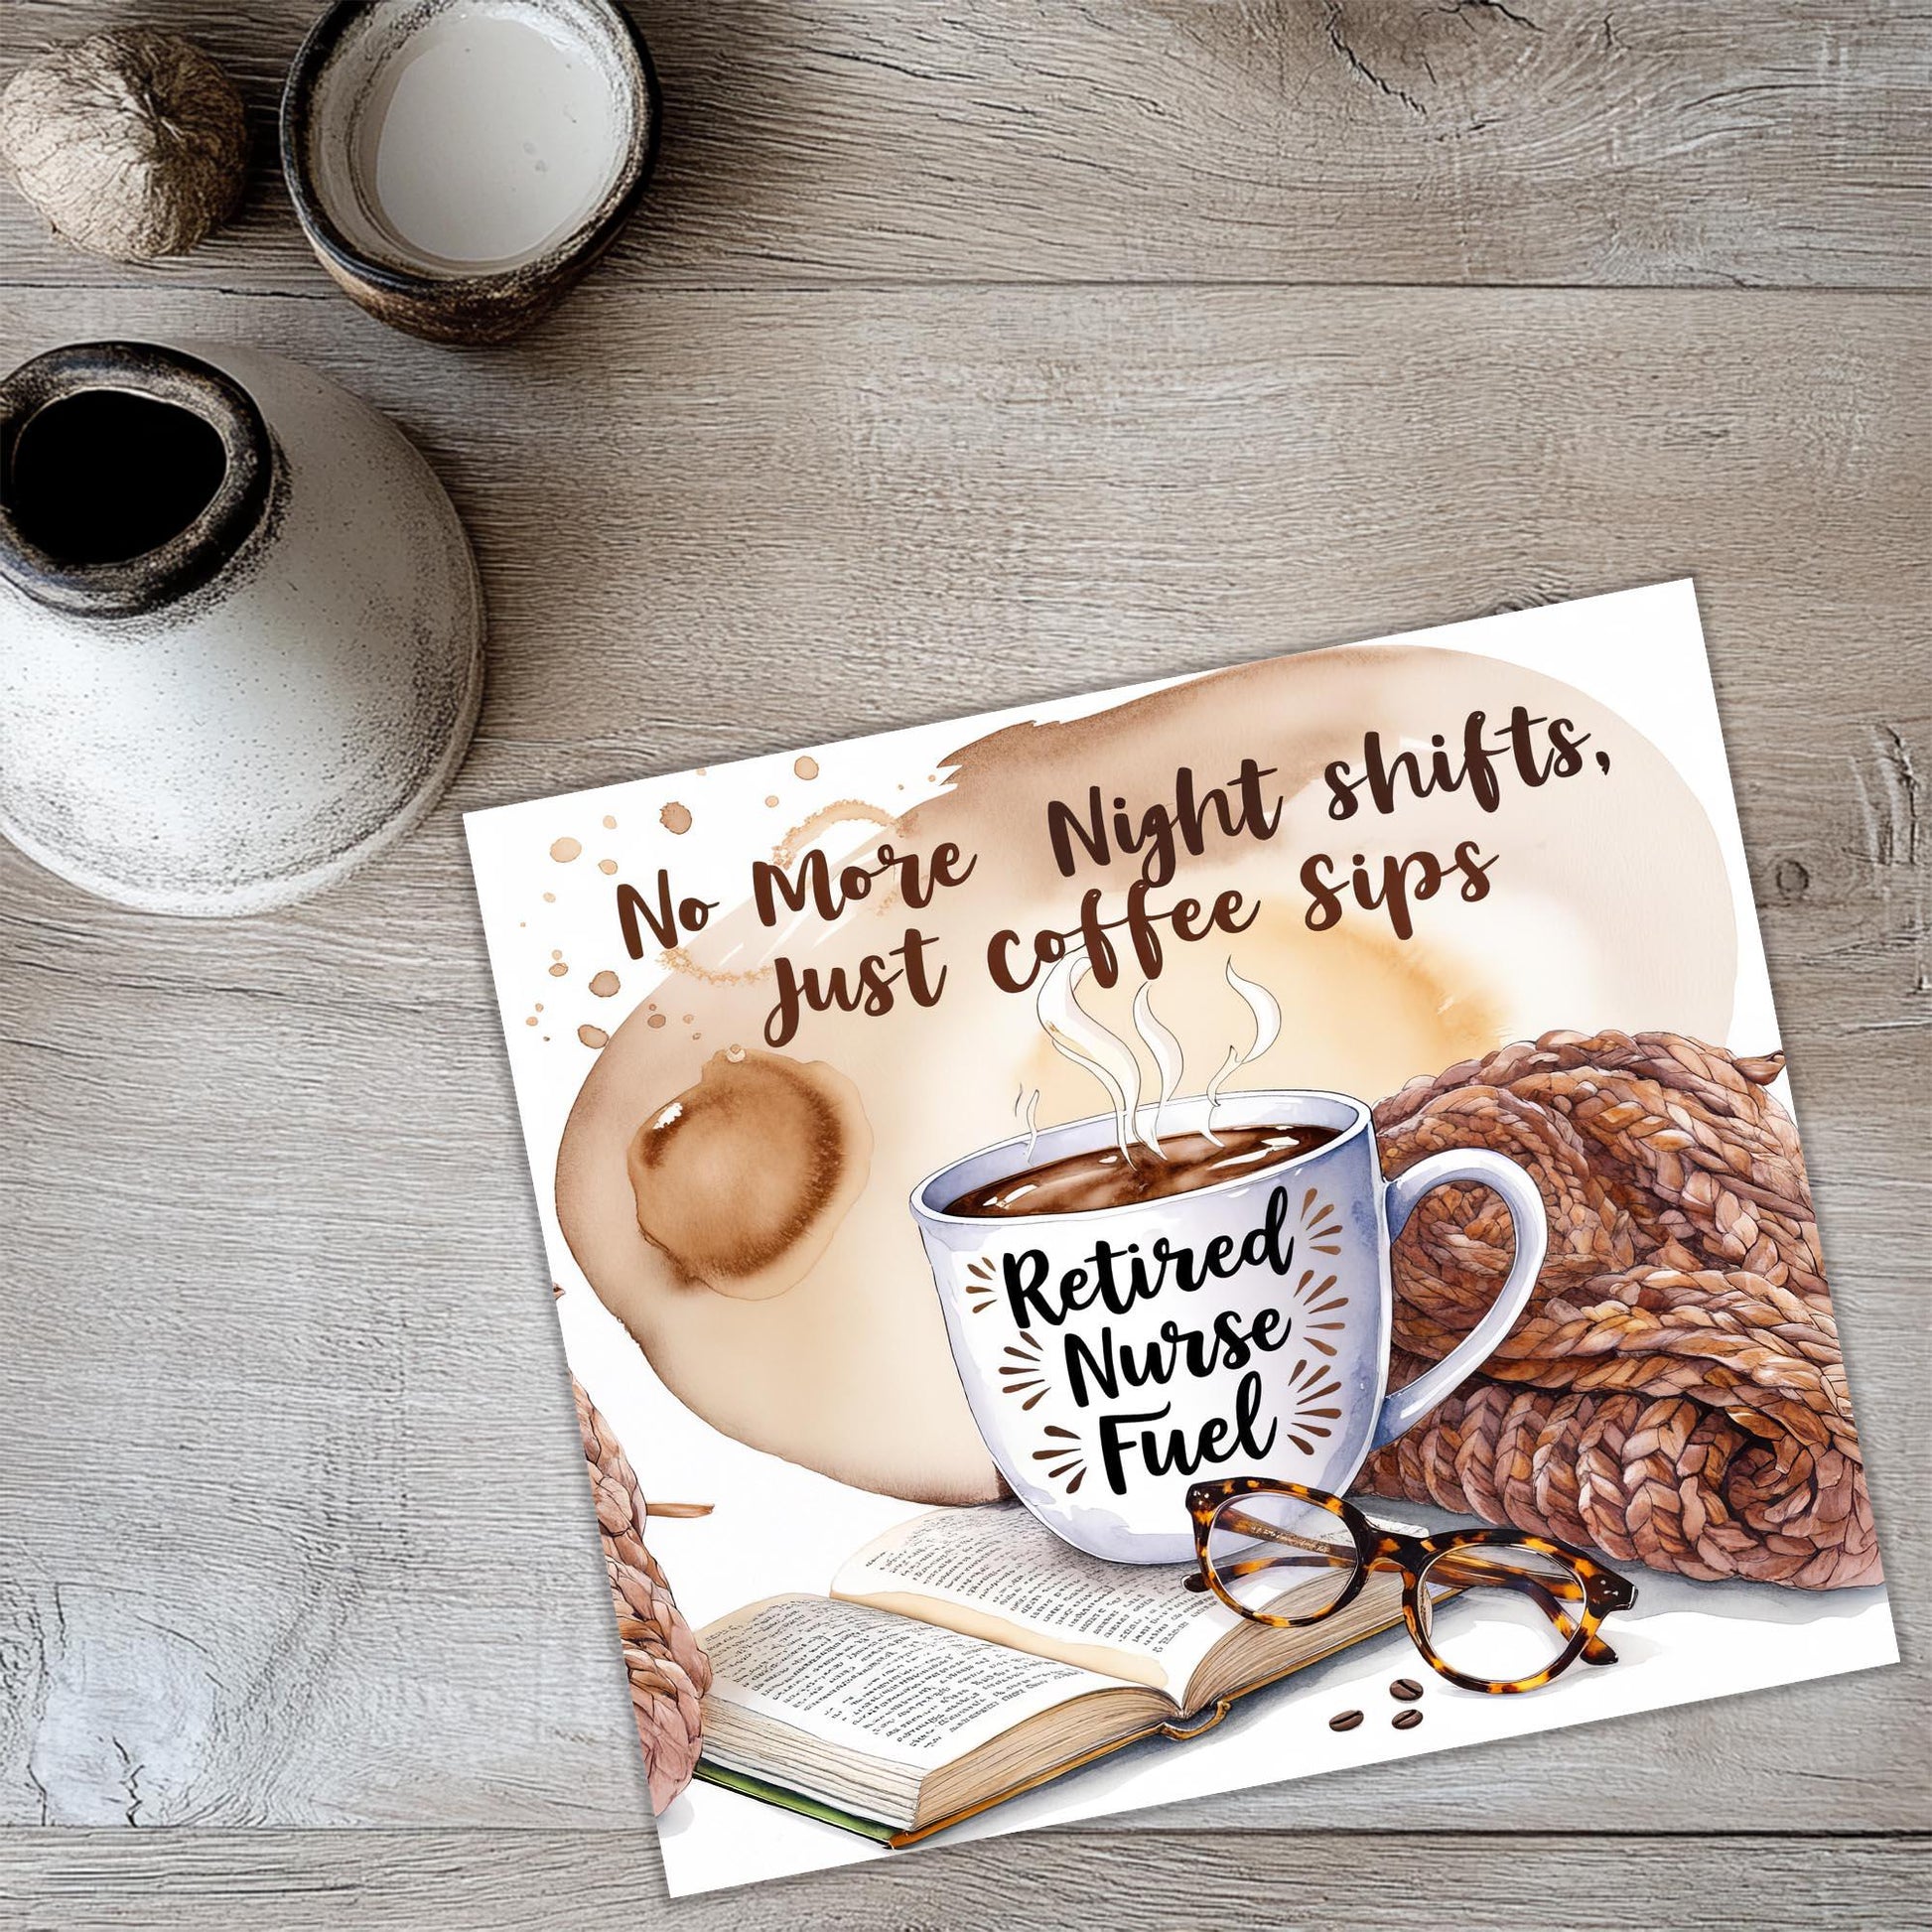 No More Night shifts,
Just coffee Sips
Retired
Nurse
Fuel